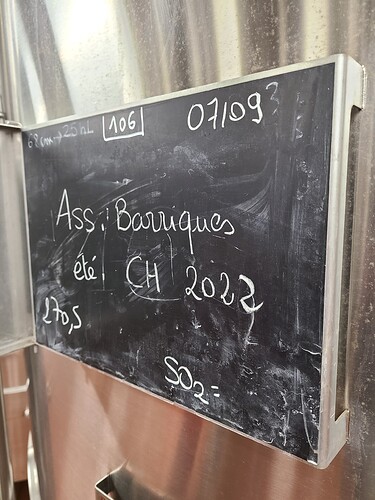 68cm→25hL 106 07/09
Ass. Barriques
été CH 2022
270,5
SO2=